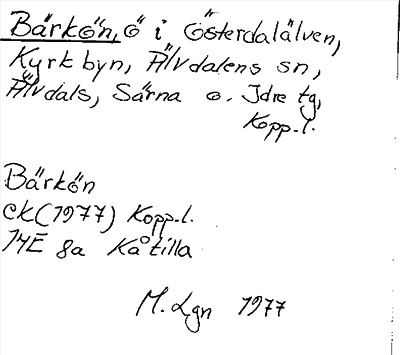 Bärkön, ö i Österdalälven,
Kyrkbyn, Älvdalens sn,
Älvdals, Särna o. Idre tg,
Kopp.l.
Bärkön
EK(1977) Kopp.l.
14E 8a Kåtilla
M. Lgn 1977